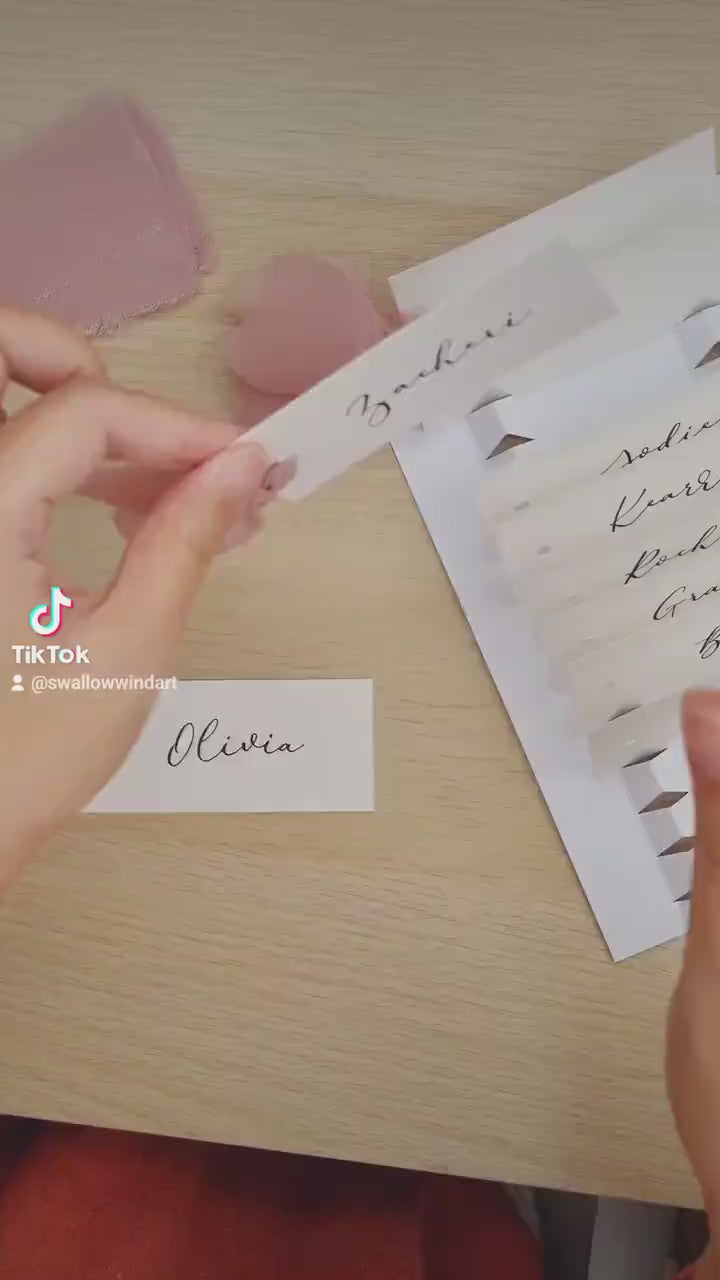 Zacheri
Rock
Gra
B
TikTok
@swallowwindart
Olivia